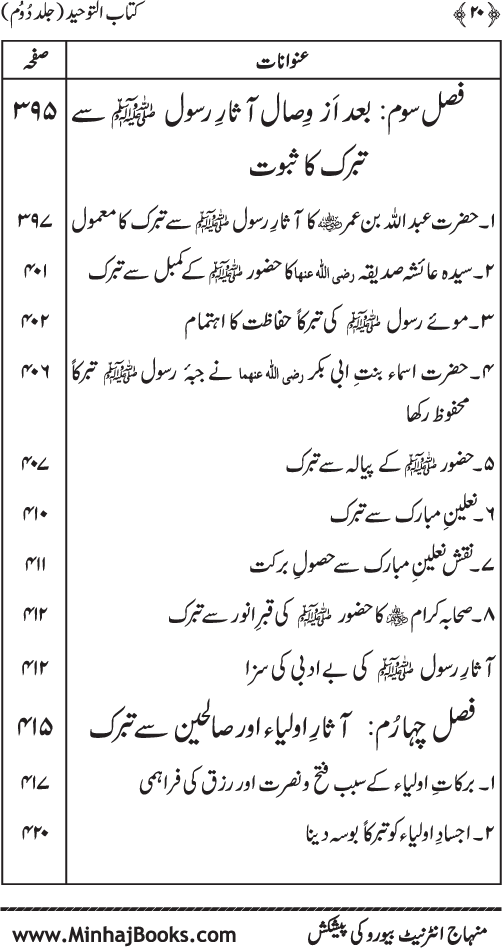 ﴿۲۰﴾ کتاب التوحید (جلد دُوُم)
عنوانات صفحہ
فصل سوم: بعد اَز وِصال آثارِ رسول ﷺ سے ۳۹۵
تبرک کا ثبوت
۱۔ حضرت عبد اللہ بن عمر رضی اللہ عنہ کا آثارِ رسول ﷺ سے تبرک کا معمول ۳۹۷
۲۔ سیدہ عائشہ صدیقہ رضی اللہ عنہا کا حضور ﷺ کے کمبل سے تبرک ۴۰۱
۳۔ موئے رسول ﷺ کی تبرکاً حفاظت کا اہتمام ۴۰۲
۴۔ حضرت اسماء بنتِ ابی بکر رضی اللہ عنہما نے جبۂ رسول ﷺ تبرکاً ۴۰۶
محفوظ رکھا
۵۔ حضور ﷺ کے پیالہ سے تبرک ۴۰۷
۶۔ نعلینِ مبارک سے تبرک ۴۱۰
۷۔ نقش نعلینِ مبارک سے حصولِ برکت ۴۱۱
۸۔ صحابہ کرام ﷺ کا حضور ﷺ کی قبرِ انور سے تبرک ۴۱۲
آثارِ رسول ﷺ کی بے ادبی کی سزا ۴۱۲
فصل چہارُم: آثارِ اولیاء اور صالحین سے تبرک ۴۱۵
۱۔ برکاتِ اولیاء کے سبب فتح و نصرت اور رزق کی فراہمی ۴۱۷
۲۔ اجسادِ اولیاء کو تبرکاً بوسہ دینا ۴۲۰
منہاج انٹرنیٹ بیورو کی پیشکش www.MinhajBooks.com